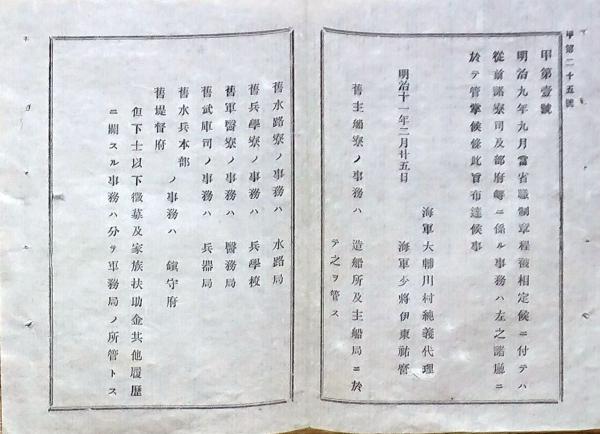 甲第二十五號
甲第壹號
明治九年九月當省職制章程被相定候ニ付テハ
從前諸寮司及部府等ニ係ル事務ハ左之諸廳ニ
於テ管掌候條此旨布達候事
明治十一年二月廿五日
海軍大輔川村純義代理
海軍少將伊東祐麿
舊主船寮ノ事務ハ 造船所及主船局ニ於
テ之ヲ管ス
舊水路寮ノ事務ハ 水路局
舊兵學寮ノ事務ハ 兵學校
舊軍醫寮ノ事務ハ 醫務局
舊武庫司ノ事務ハ 兵器局
舊水兵本部
ノ事務ハ 鎮守府
舊堤督府
但下士以下徵募及家族扶助金其他履歷
ニ關スル事務ハ分テ軍務局ノ所管トス